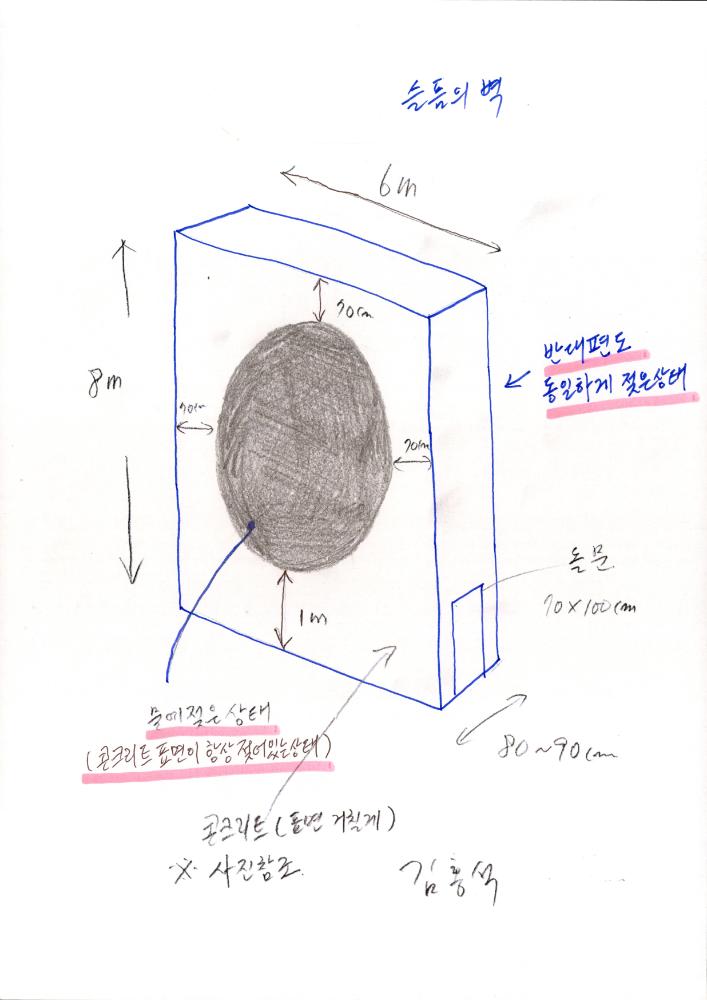 슬픔의 벽
6m
90cm
8m
반대편도
동일하게 젖은상태
70cm
70cm
돌문
70×100cm
1m
물에젖은상태
(콘크리트 표면이 항상 젖어있는상태)
80~90cm
콘크리트 (표면 거칠게)
※ 사진참조.
김홍석